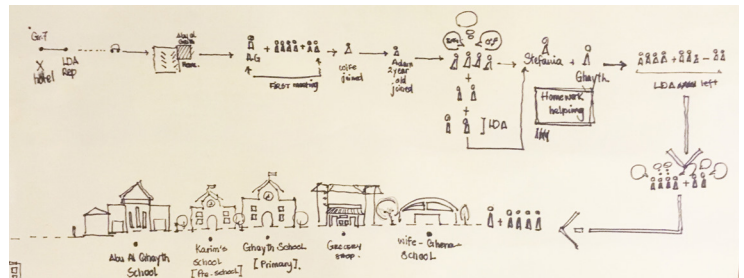 X
hotel
LDA
Rep
Abu al
Gaith
Home.
A.G
First meeting
wife
joined
2 year
old
joined
] LDA
Stefania +
Ghayth
Homework
helping
LDA
left
Abu Al Ghayth
School
Karim's
School
Ghayth-School
[Primary].
Grocery
shop.
wife - Ghena
School